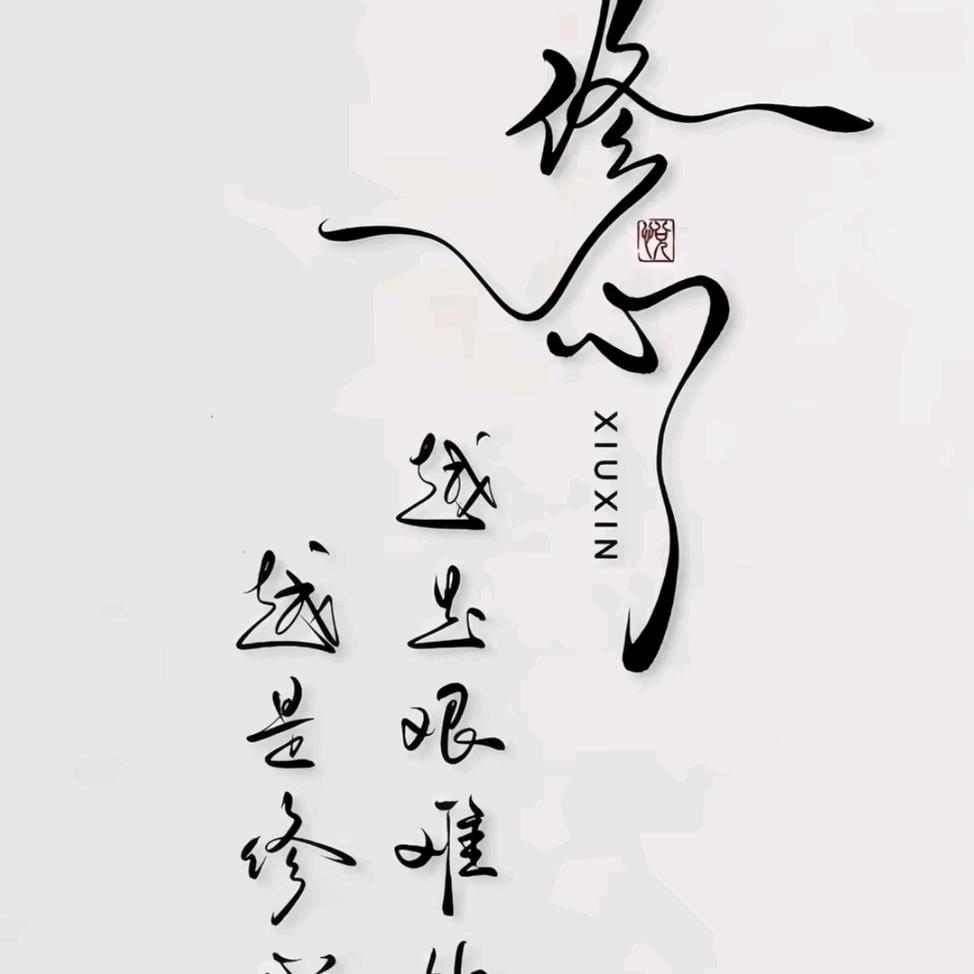 修心
悦
XIUXIN
越是艰难
越是修